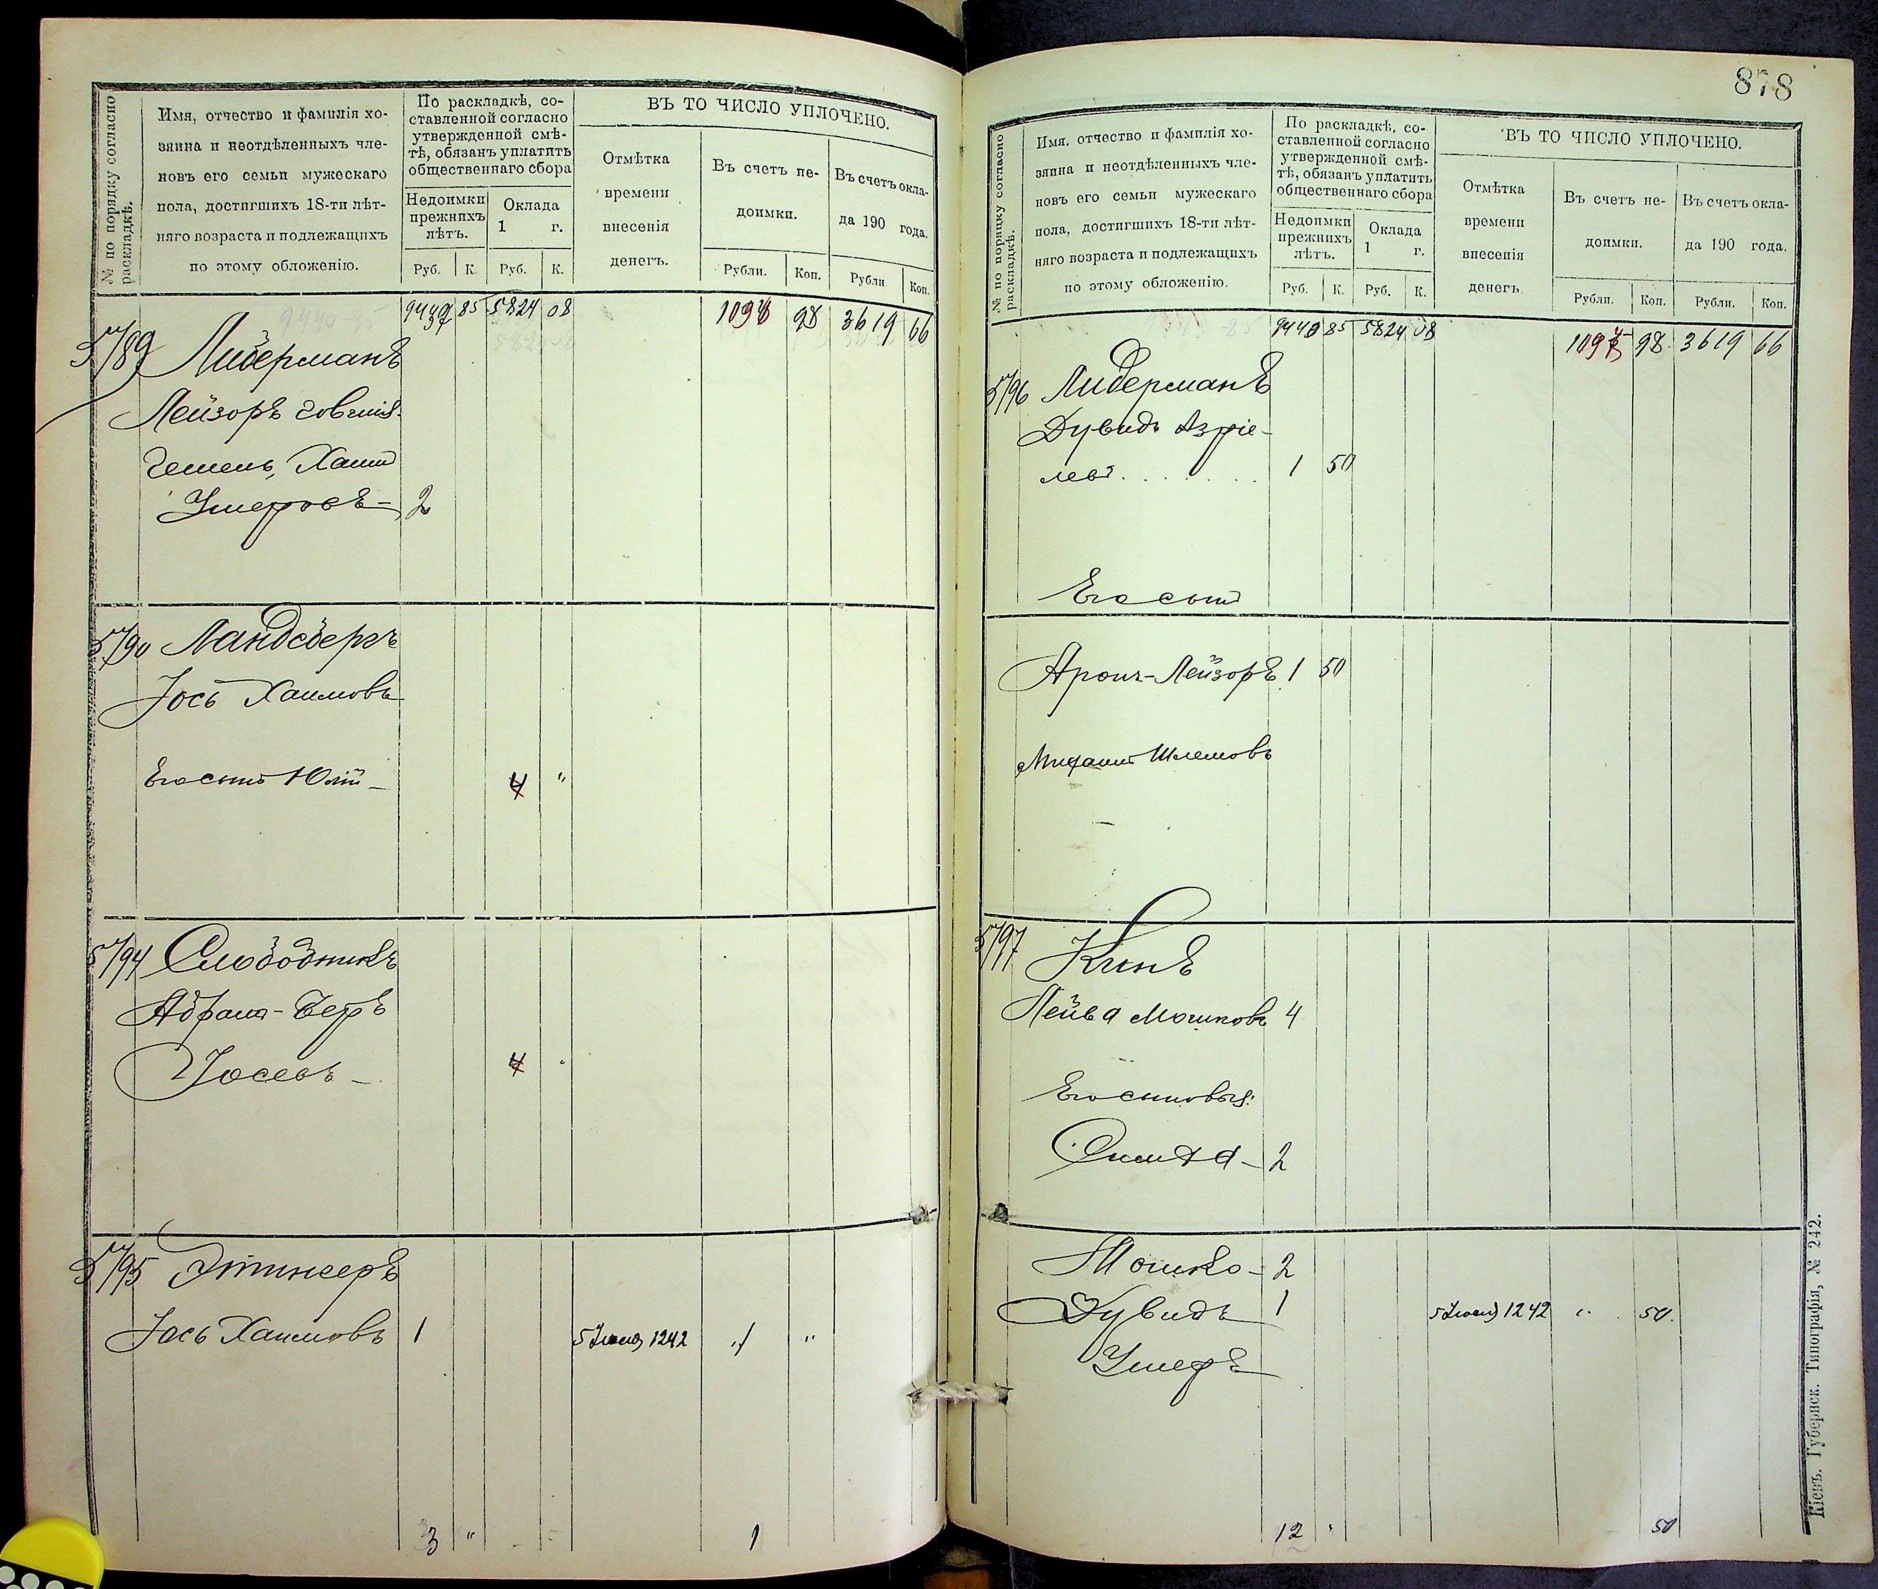 № по порядку согласно раскладкѣ.
Имя, отчество и фамилія хо-
зяина и неотдѣленныхъ чле-
новъ его семьи мужескаго
пола, достигшихъ 18-ти лѣт-
няго возраста и подлежащихъ
по этому обложенію.
По раскладкѣ, со-
ставленной согласно
утвержденной смѣ-
тѣ, обязанъ уплатить
общественнаго сбора
Недоимки
прежнихъ
лѣтъ.
Оклада
1 г.
Руб. К. Руб. К.
ВЪ ТО ЧИСЛО УПЛОЧЕНО.
Отмѣтка
времени
внесенія
денегъ.
Въ счетъ не-
доимки.
Рубли. Коп.
Въ счетъ окла-
да 190 года.
Рубли Коп.
85 5824 08 98 3619 66
5789 Либерманъ
Лейзоръ
Хаим
Умеровъ- 2
5790 Ландсбергъ
Іось Хаимовъ
Его сынъ Юлій - 4 "
5794 Слободникъ
Абрамъ-Беръ
Іосевъ - 4
5795 Этингеръ
Іось Хаимовъ 1 5 Іюля 1242 1 "
3 " 1
878
№ по порядку согласно раскладкѣ.
Имя, отчество и фамилія хо-
зяина и неотдѣленныхъ чле-
новъ его семьи мужескаго
пола, достигшихъ 18-ти лѣт-
няго возраста и подлежащихъ
по этому обложенію.
По раскладкѣ, со-
ставленной согласно
утвержденной смѣ-
тѣ, обязанъ уплатить
общественнаго сбора
Недоимки
прежнихъ
лѣтъ.
Оклада
1 г.
Руб. К. Руб. К.
ВЪ ТО ЧИСЛО УПЛОЧЕНО.
Отмѣтка
времени
внесенія
денегъ
Въ счетъ не-
доимки.
Рубли. Коп.
Въ счетъ окла-
да 190 года.
Рубли. Коп.
9440 85 5824 08 98 3619 66
5796 Либерманъ
Дувидъ Азріе-
левъ . . . . . . . 1 50
Его сынъ
Аронъ-Лейзоръ 1 50
Шлемовъ
5797 Кинъ
Лейба Мошковъ 4
Его сыновья:
2
Мошко - 2
Дувидъ 1 5 Іюля 1242 " 50.
Умеръ
12 " 50
Кіевъ. Губернск. Типографія, № 242.